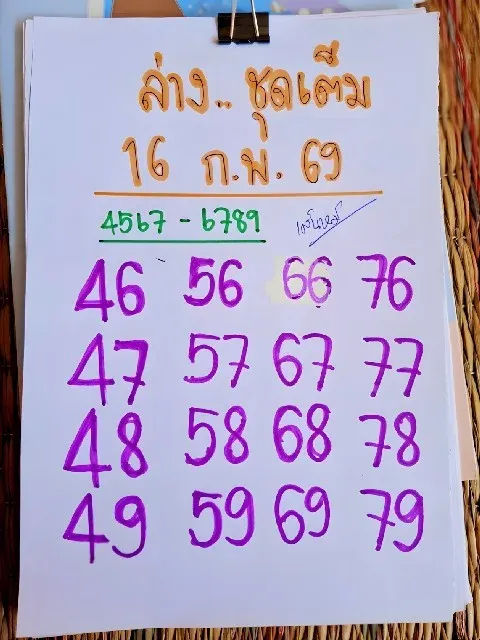 ล่าง.. ชุดเต็ม
16 ก.พ. 69
4567 - 6789
46 56 66 76
47 57 67 77
48 58 68 78
49 59 69 79